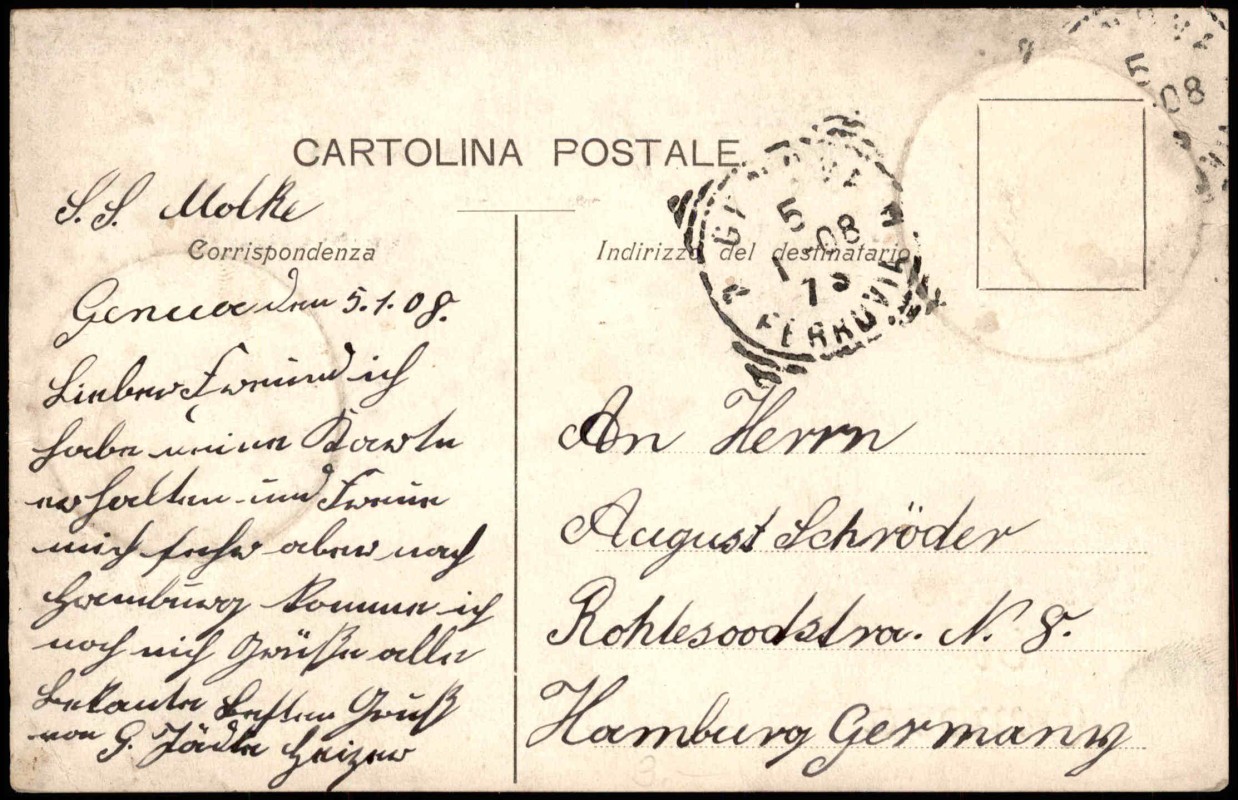 CARTOLINA POSTALE
S. S. Molke
Corrispondenza
Genua den 5.1.08.
Lieber Freund ich
habe meine Karte
erhalten und Freue
mich sehr aber nach
Hamburg komme ich
noch nich Grüße alle
bekante besten Gruß
von G. Heizer
Indirizzo del destinatario
5
08
5
1 08
FERROVIA
An Herrn
August Schröder
N. 8.
Hamburg Germany